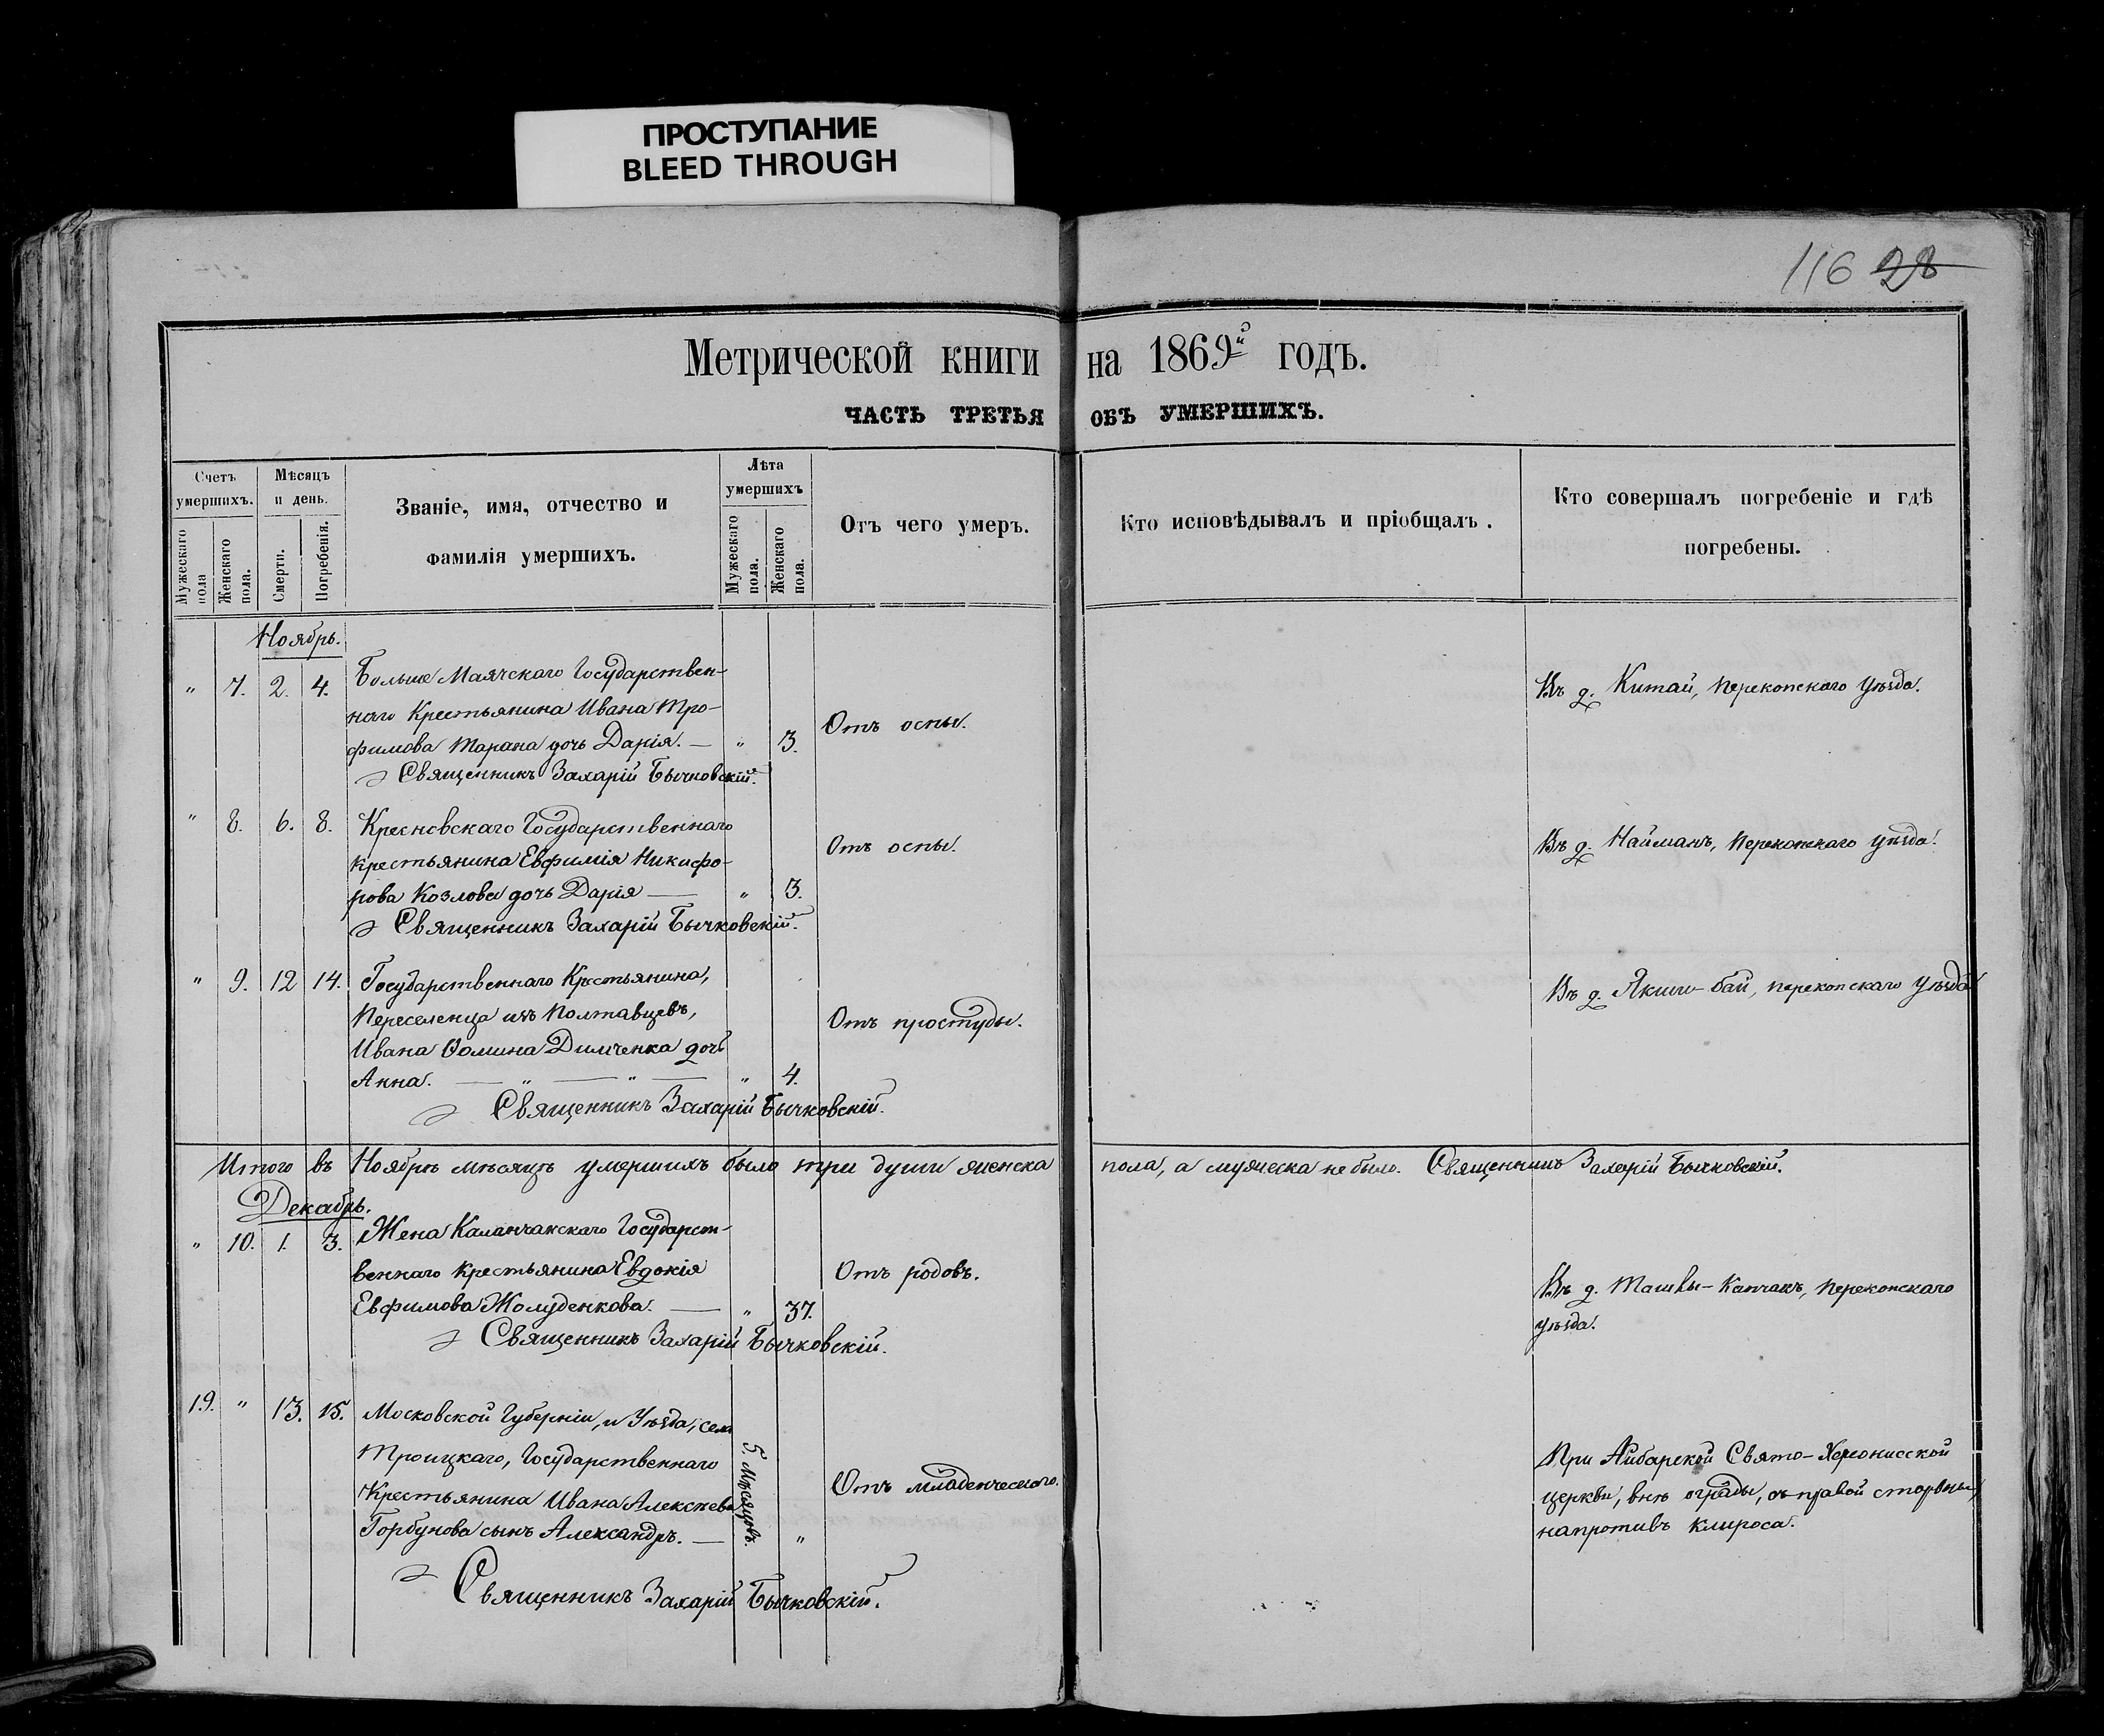 ПРОСТУПАНИЕ
BLEED THROUGH
116 28
Метрической книги на 1869й годъ.
ЧАСТЬ ТРЕТЬЯ ОБЪ УМЕРШИХЪ.
Счетъ умершихъ.
Мужескаго пола
Женскаго пола.
Мѣсяцъ и день.
Смерти.
Погребенія.
Званіе, имя, отчество и
фамилія умершихъ.
Лѣта умершихъ
Мужескаго пола.
Женскаго пола.
Отъ чего умеръ.
Кто исповѣдывалъ и пріобщалъ.
Кто совершалъ погребеніе и гдѣ
погребены.
Ноябрь.
" 7. 2. 4. Больше Маячскаго Государствен-
наго Крестьянина Ивана Тро-
фимова Тарана дочь Дарія. — " 3.
Отъ оспы.
Въ д. Китай, Перекопскаго Уѣзда.
Священникъ Захарій Бычковскій.
" 8. 6. 8. Государственнаго
крестьянина Евфимія Никифо-
рова Козлова дочь Дарія — " 3.
Отъ оспы.
Въ д. Найманъ, Перекопскаго уѣзда.
Священникъ Захарій Бычковскій.
" 9. 12 14. Государственнаго Крестьянина,
Переселенца изъ Полтавцевъ,
Ивана Ѳомина Димченка дочь
Анна. — " — " — " 4.
Отъ простуды.
Въ д. бай, Перекопскаго Уѣзда
Священникъ Захарій Бычковскій.
Итого въ Ноябрѣ мѣсяцѣ умершихъ было три души женска пола, а мужеска не было. Священникъ Захарій Бычковскій.
Декабрь.
" 10. 1. 3. Жена Каланчакскаго Государст-
веннаго Крестьянина Евдокія
Евфимова Жолуденкова. — " 37.
Отъ родовъ.
Въ д. Ташкы-Капчакъ, Перекопскаго
уѣзда.
Священникъ Захарій Бычковскій.
19. " 13. 15. Московской Губерніи, и Уѣзда, села
Троицкаго, Государственнаго
Крестьянина Ивана Алексѣева
Горбунова сынъ Александръ. — 5. Мѣсяцовъ. "
Отъ младенческаго.
При Айбарской Свято-Херсонисской
церкви, внѣ ограды, съ правой стороны,
напротивъ клироса.
Священникъ Захарій Бычковскій.